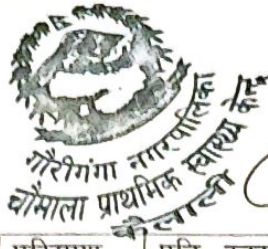 गौरीगंगा नगरपालिका
चौमाला प्राथमिक स्वास्थ्य केन्द्र
कैलाली